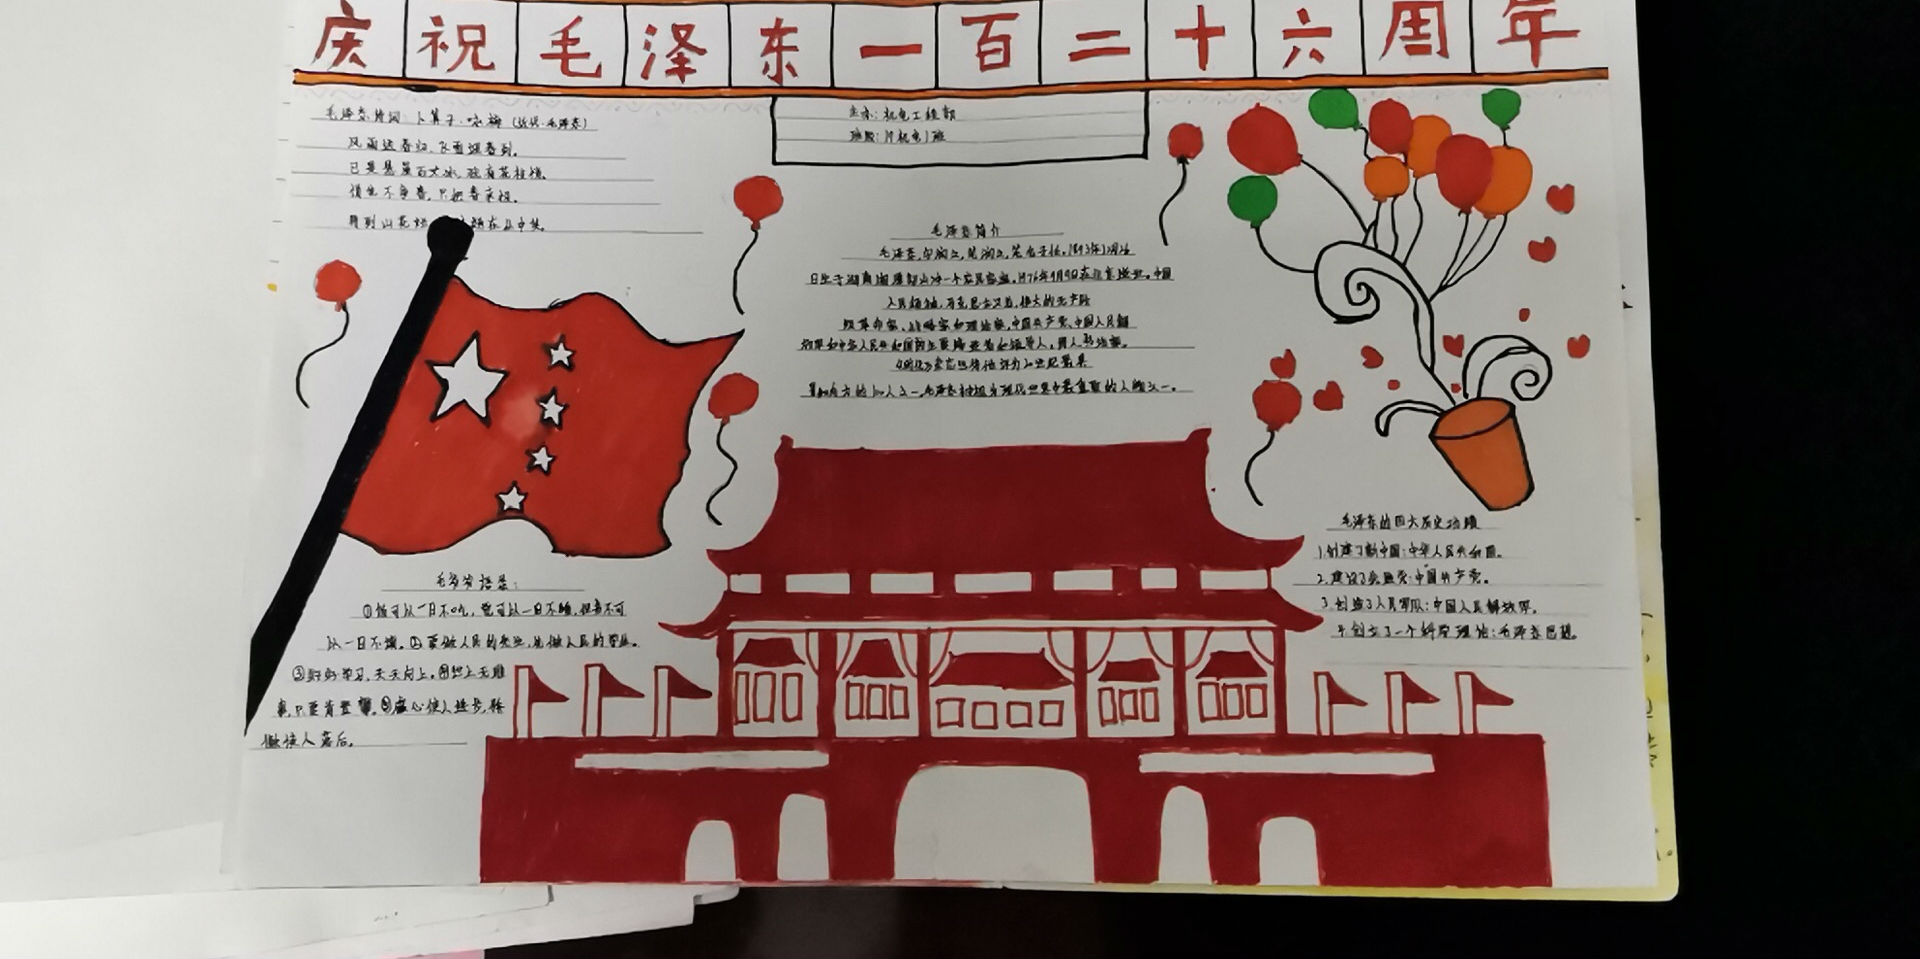 庆祝毛泽东一百二十六周年
毛泽东诗词:卜算子·咏梅(近代·毛泽东)
风雨送春归,飞雪迎春到。
已是悬崖百丈冰,犹有花枝俏。
俏也不争春,只把春来报。
待到山花烂 她在丛中笑。
主办:机电工程部
班级:19机电1班
毛泽东简介
毛泽东,字润之,笔名子任。1893年12月26
日生于湖南湘潭韶山冲一个农民家庭。1976年9月9日在北京逝世。中国
人民领袖,马克思主义者,伟大的无产阶
级革命家、战略家和理论家,中国共产党、中国人民解
放军和中华人民共和国的主要缔造者和领导人,诗人,书法家。
毛泽东被视为现代世界中最重要的人物之一。
毛爷爷语录:
①饭可以一日不吃,觉可以一日不睡,但书不可
以一日不读。②要做人民的先生,先做人民的学生。
③好好学习,天天向上。④世上无难
事,只要肯登攀。⑤虚心使人进步,骄
傲使人落后。
毛泽东的四大历史功绩
1.创建了新中国:中华人民共和国。
2.建设了先进党:中国共产党。
3.创造了人民军队:中国人民解放军。
4.创立了一个科学理论:毛泽东思想。